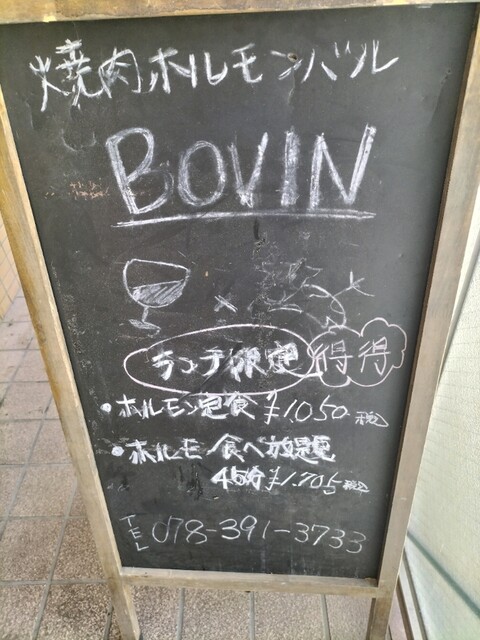 焼肉ホルモンバル
BOVIN
×
ランチ限定 得得
・ホルモン定食 ¥1.050 税込
・ホルモン食べ放題
45分 ¥1.705 税込
TEL 078-391-3733